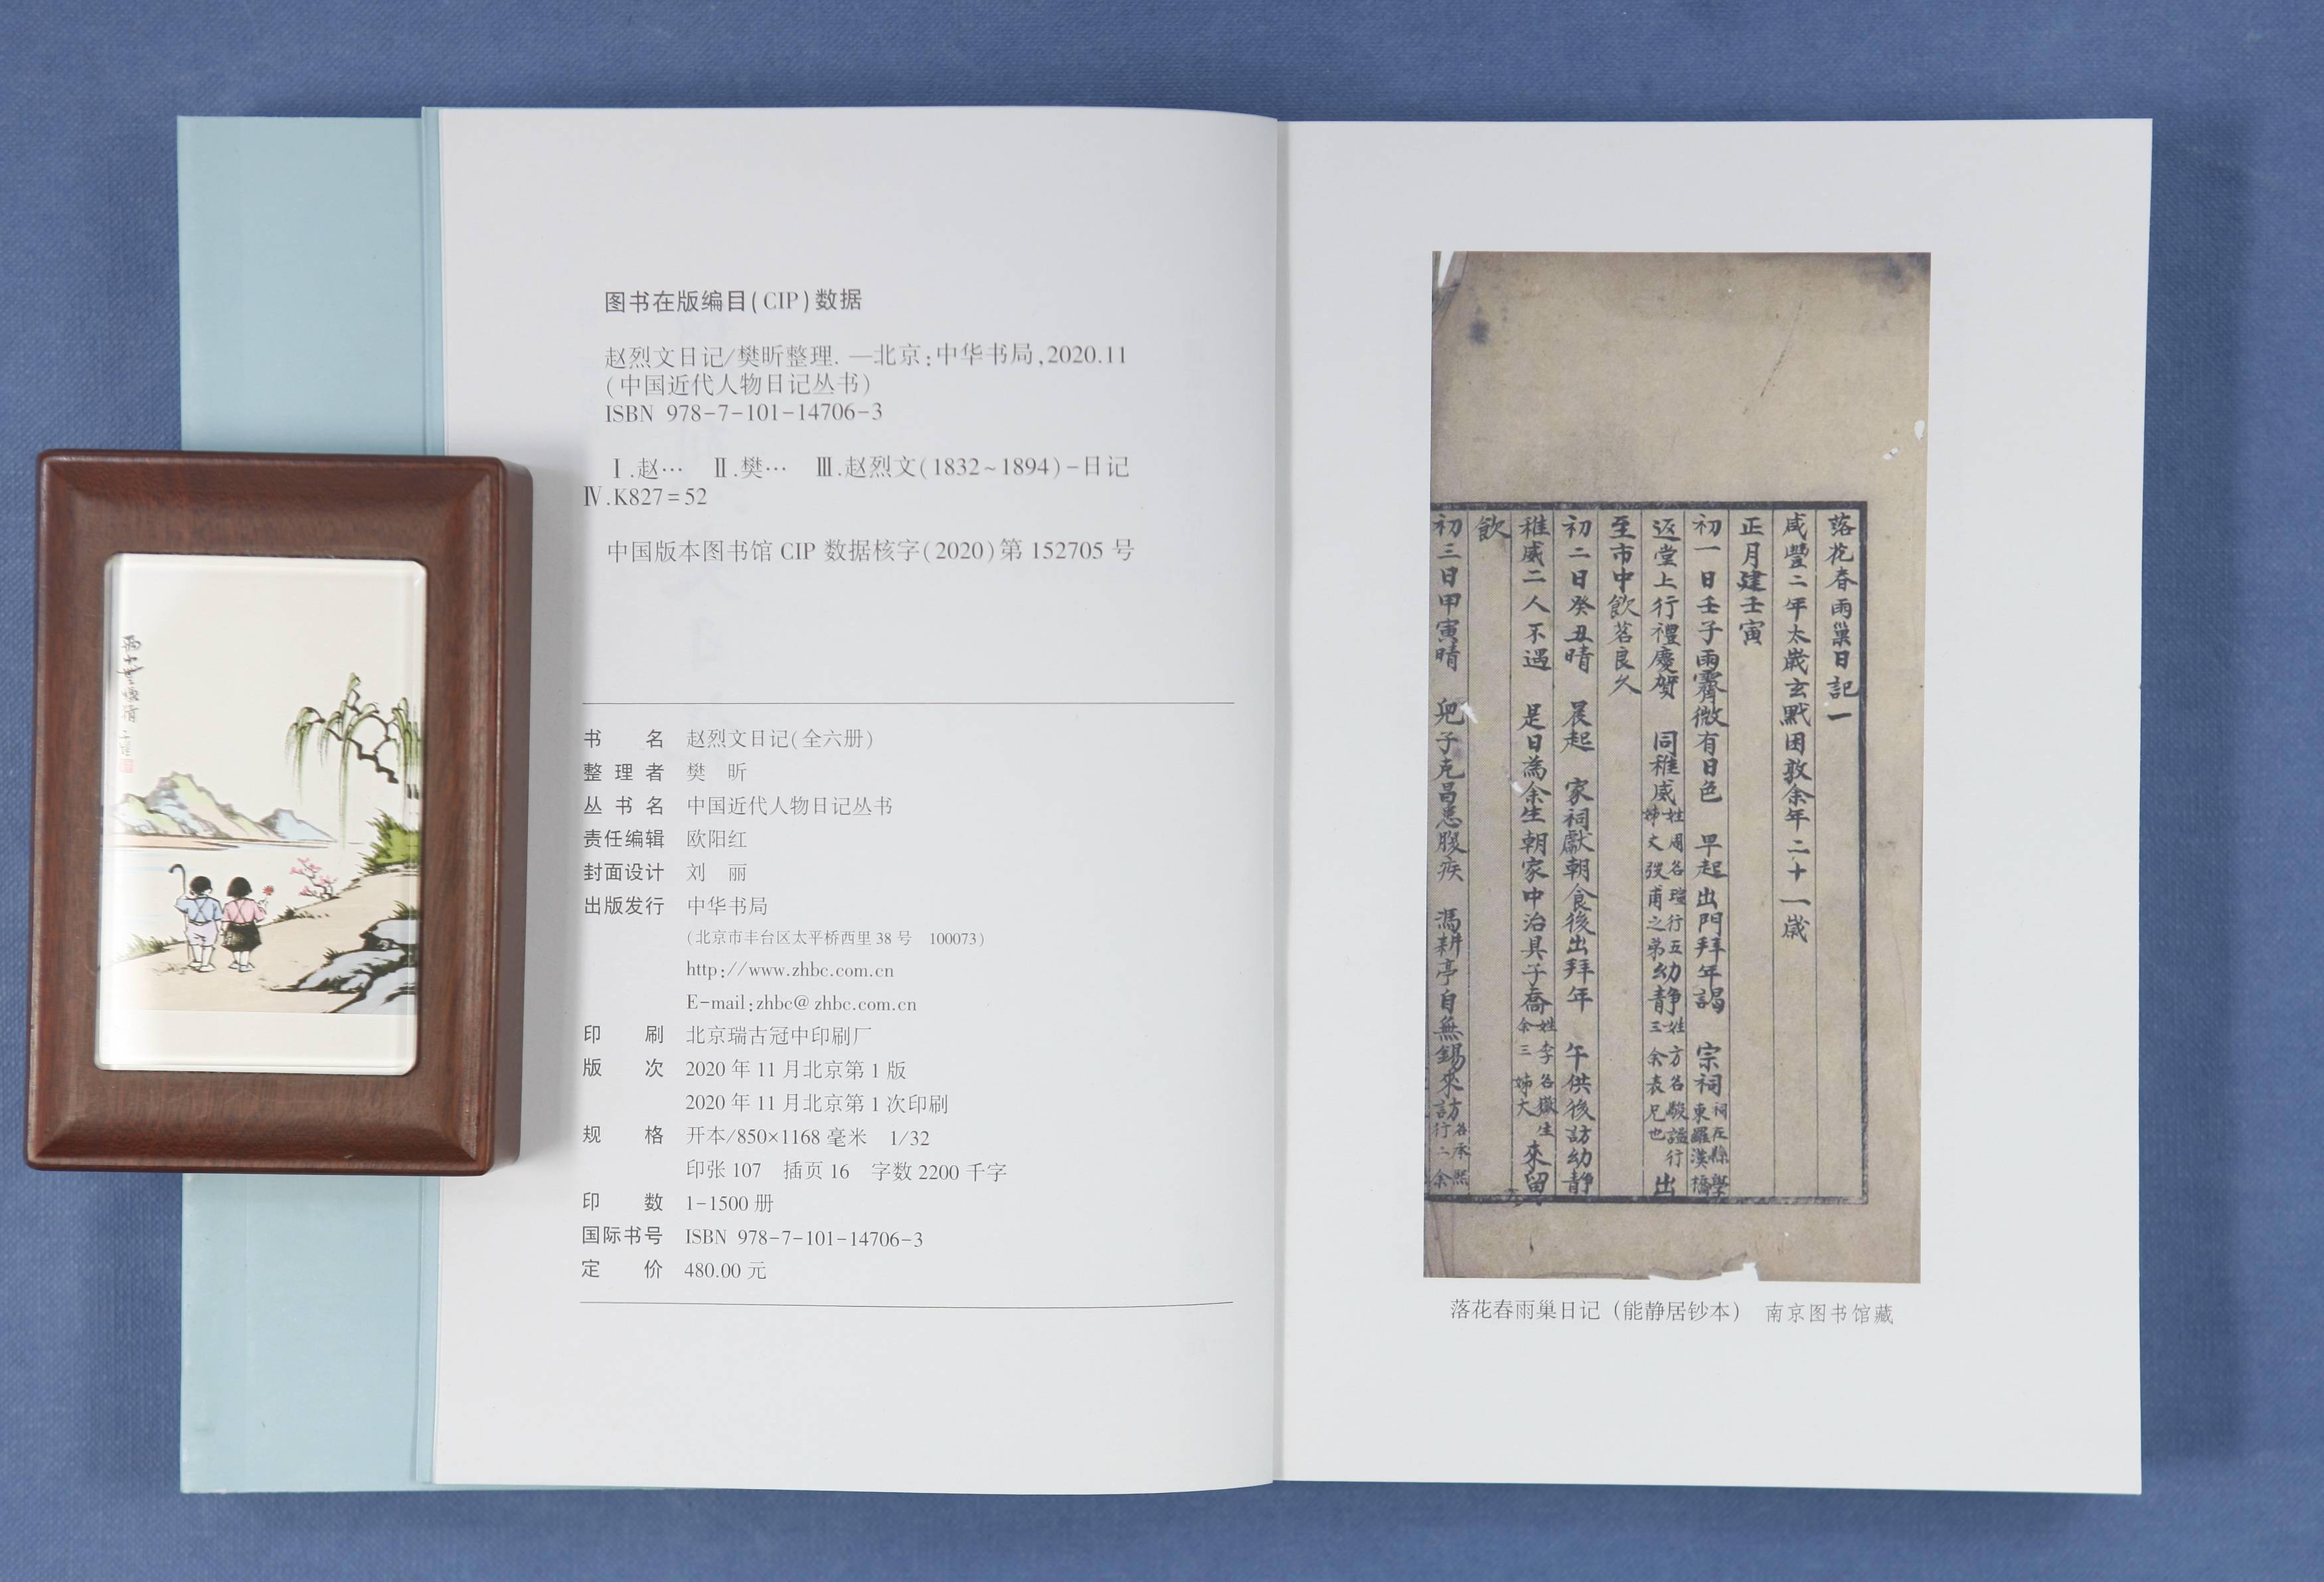 图书在版编目(CIP)数据
赵烈文日记/樊昕整理. —北京:中华书局,2020.11
(中国近代人物日记丛书)
ISBN 978-7-101-14706-3
Ⅰ.赵… Ⅱ.樊… Ⅲ.赵烈文(1832~1894)-日记
Ⅳ.K827=52
中国版本图书馆 CIP 数据核字(2020)第 152705 号
书 名 赵烈文日记(全六册)
整 理 者 樊 昕
丛 书 名 中国近代人物日记丛书
责任编辑 欧阳红
封面设计 刘 丽
出版发行 中华书局
(北京市丰台区太平桥西里 38 号 100073)
http://www.zhbc.com.cn
E-mail:zhbc@zhbc.com.cn
印 刷 北京瑞古冠中印刷厂
版 次 2020 年 11 月北京第 1 版
2020 年 11 月北京第 1 次印刷
规 格 开本/850×1168 毫米 1/32
印张 107 插页 16 字数 2200 千字
印 数 1-1500 册
国际书号 ISBN 978-7-101-14706-3
定 价 480.00 元
落花春雨巢日記一
咸豐二年太歲玄黓困敦余年二十一歲
正月建壬寅
初一日壬子雨霽微有日色 早起出門拜年謁 宗祠祠在縣學東羅漢橋
返堂上行禮慶賀 同稚威姓周名瑄行五姊丈弢甫之弟幼靜姓方名駿謨行三余表兄也出
至市中飲茗良久
初二日癸丑晴 晨起 家祠獻朝食後出拜年 午供後訪幼靜
稚威二人不遇 是日為余生朝家中治具子喬姓李名嶽生余三姊大來留
飲
初三日甲寅晴 兒子克昌患腹疾 馮耕亭自無錫來訪名承熙行二余
落花春雨巢日记（能静居钞本） 南京图书馆藏